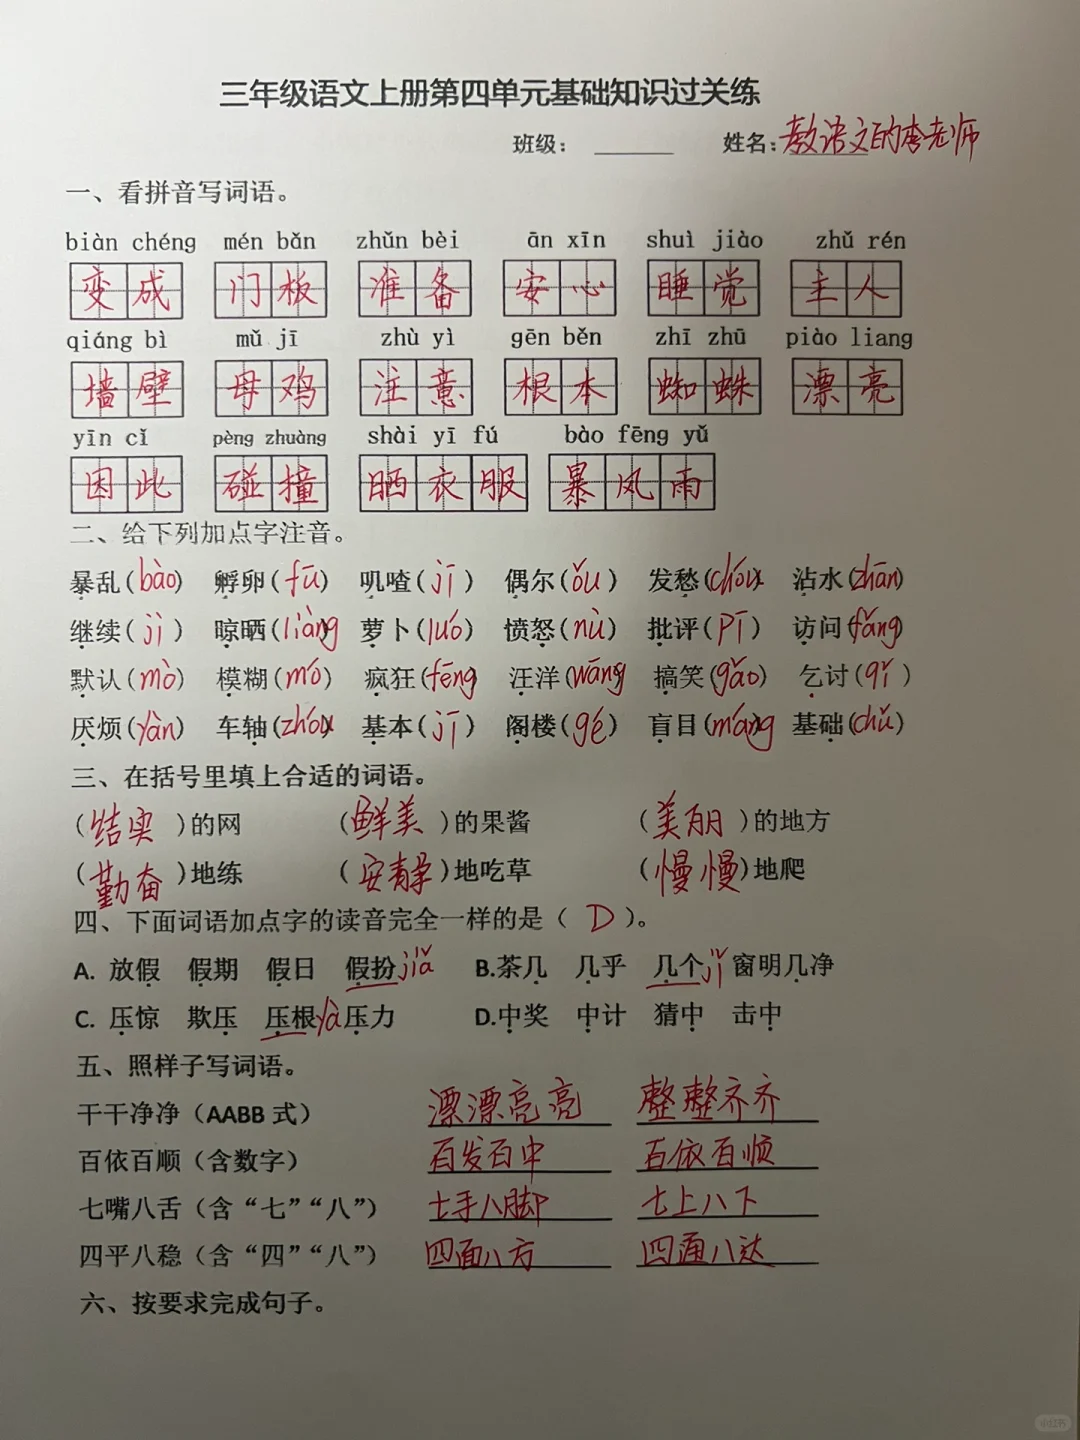 三年级语文上册第四单元基础知识过关练
班级： ______ 姓名：教语文的李老师
一、看拼音写词语。
biàn chéng mén bǎn zhǔn bèi ān xīn shuì jiào zhǔ rén
变成 门板 准备 安心 睡觉 主人
qiáng bì mǔ jī zhù yì gēn běn zhī zhū piào liang
墙壁 母鸡 注意 根本 蜘蛛 漂亮
yīn cǐ pèng zhuàng shài yī fú bào fēng yǔ
因此 碰撞 晒衣服 暴风雨
二、给下列加点字注音。
暴乱(bào) 孵卵(fū) 叽喳(jī) 偶尔(ǒu) 发愁(chóu) 沾水(zhān)
继续(jì) 晾晒(liàng) 萝卜(luó) 愤怒(nù) 批评(pī) 访问(fǎng)
默认(mò) 模糊(mó) 疯狂(fēng) 汪洋(wāng) 搞笑(gǎo) 乞讨(qǐ)
厌烦(yàn) 车轴(zhóu) 基本(jī) 阁楼(gé) 盲目(máng) 基础(chǔ)
三、在括号里填上合适的词语。
(结实)的网 (鲜美)的果酱 (美丽)的地方
(勤奋)地练 (安静)地吃草 (慢慢)地爬
四、下面词语加点字的读音完全一样的是（ D ）。
A. 放假 假期 假日 假扮jiǎ B.茶几 几乎 几个jǐ 窗明几净
C. 压惊 欺压 压根yà 压力 D.中奖 中计 猜中 击中
五、照样子写词语。
干干净净（AABB 式） 漂漂亮亮 整整齐齐
百依百顺（含数字） 百发百中 百依百顺
七嘴八舌（含“七”“八”） 七手八脚 七上八下
四平八稳（含“四”“八”） 四面八方 四通八达
六、按要求完成句子。
小红书